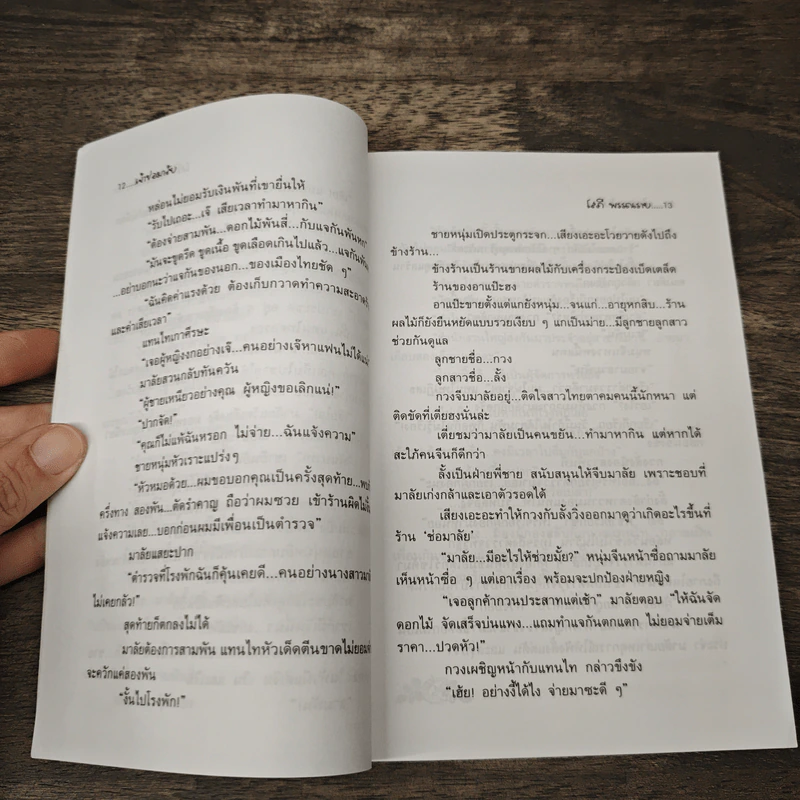 12....เจ้าช่อมาลัย
หล่อนไม่ยอมรับเงินพันที่เขายื่นให้
“รับไปเถอะ...เจ๊ เสียเวลาทำมาหากิน”
“ต้องจ่ายสามพัน...ดอกไม้พันสี่...กับแจกันพันหก”
“มันจะขูดรีด ขูดเนื้อ ขูดเลือดเกินไปแล้ว...แจกัน
...อย่าบอกนะว่าแจกันของนอก...ของเมืองไทยชัด ๆ”
“ฉันคิดค่าแรงด้วย ต้องเก็บกวาดทำความสะอาด
และค่าเสียเวลา”
แทนไทเกาศีรษะ
“เจอผู้หญิงงกอย่างเจ๊...คนอย่างเจ๊หาแฟนไม่ได้
มาลัยสวนกลับทันควัน
“ผู้ชายเหนียวอย่างคุณ ผู้หญิงขอเลิกแน่!”
“ปากจัด!”
“คุณก็ไม่แพ้ฉันหรอก ไม่จ่าย...ฉันแจ้งความ”
ชายหนุ่มหัวเราะแปร่งๆ
“หัวหมอด้วย...ผมขอบอกคุณเป็นครั้งสุดท้าย...พบ
ครึ่งทาง สองพัน...ตัดรำคาญ ถือว่าผมซวย เข้าร้านผิดไม่
แจ้งความเลย...บอกก่อนผมมีเพื่อนเป็นตำรวจ”
มาลัยแสยะปาก
“ตำรวจที่โรงพักฉันก็คุ้นเคยดี...คนอย่างนางสาว
ไม่เคยกลัว!”
สุดท้ายก็ตกลงไม่ได้
มาลัยต้องการสามพัน แทนไทหัวเด็ดตีนขาดไม่ยอม
จะควักแค่สองพัน
“งั้นไปโรงพัก!”
โสภี พรรณราย....13
ชายหนุ่มเปิดประตูกระจก...เสียงเอะอะโวยวายดังไปถึง
ข้างร้าน...
ข้างร้านเป็นร้านขายผลไม้กับเครื่องกระป๋องเบ็ดเตล็ด
ร้านของอาแป๊ะฮง
อาแป๊ะขายตั้งแต่แกยังหนุ่ม...จนแก่...อายุหกสิบ...ร้าน
ผลไม้ก็ยังยืนหยัดแบบรวยเงียบ ๆ แกเป็นม่าย...มีลูกชายลูกสาว
ช่วยกันดูแล
ลูกชายชื่อ...กวง
ลูกสาวชื่อ...ลั้ง
กวงจีบมาลัยอยู่...ติดใจสาวไทยตาคมคนนี้นักหนา แต่
ติดขัดที่เตี่ยฮงนั่นล่ะ
เตี่ยชมว่ามาลัยเป็นคนขยัน...ทำมาหากิน แต่หากได้
สะใภ้คนจีนก็ดีกว่า
ลั้งเป็นฝ่ายพี่ชาย สนับสนุนให้จีบมาลัย เพราะชอบที่
มาลัยเก่งกล้าและเอาตัวรอดได้
เสียงเอะอะทำให้กวงกับลั้งวิ่งออกมาดูว่าเกิดอะไรขึ้นที่
ร้าน ‘ช่อมาลัย’
“มาลัย...มีอะไรให้ช่วยมั้ย?” หนุ่มจีนหน้าซื่อถามมาลัย
เห็นหน้าซื่อ ๆ แต่เอาเรื่อง พร้อมจะปกป้องฝ่ายหญิง
“เจอลูกค้ากวนประสาทแต่เช้า” มาลัยตอบ “ให้ฉันจัด
ดอกไม้ จัดเสร็จบ่นแพง...แถมทำแจกันตกแตก ไม่ยอมจ่ายเต็ม
ราคา...ปวดหัว!”
กวงเผชิญหน้ากับแทนไท กล่าวขึงขัง
“เฮ้ย! อย่างงี้ได้ไง จ่ายมาซะดี ๆ”